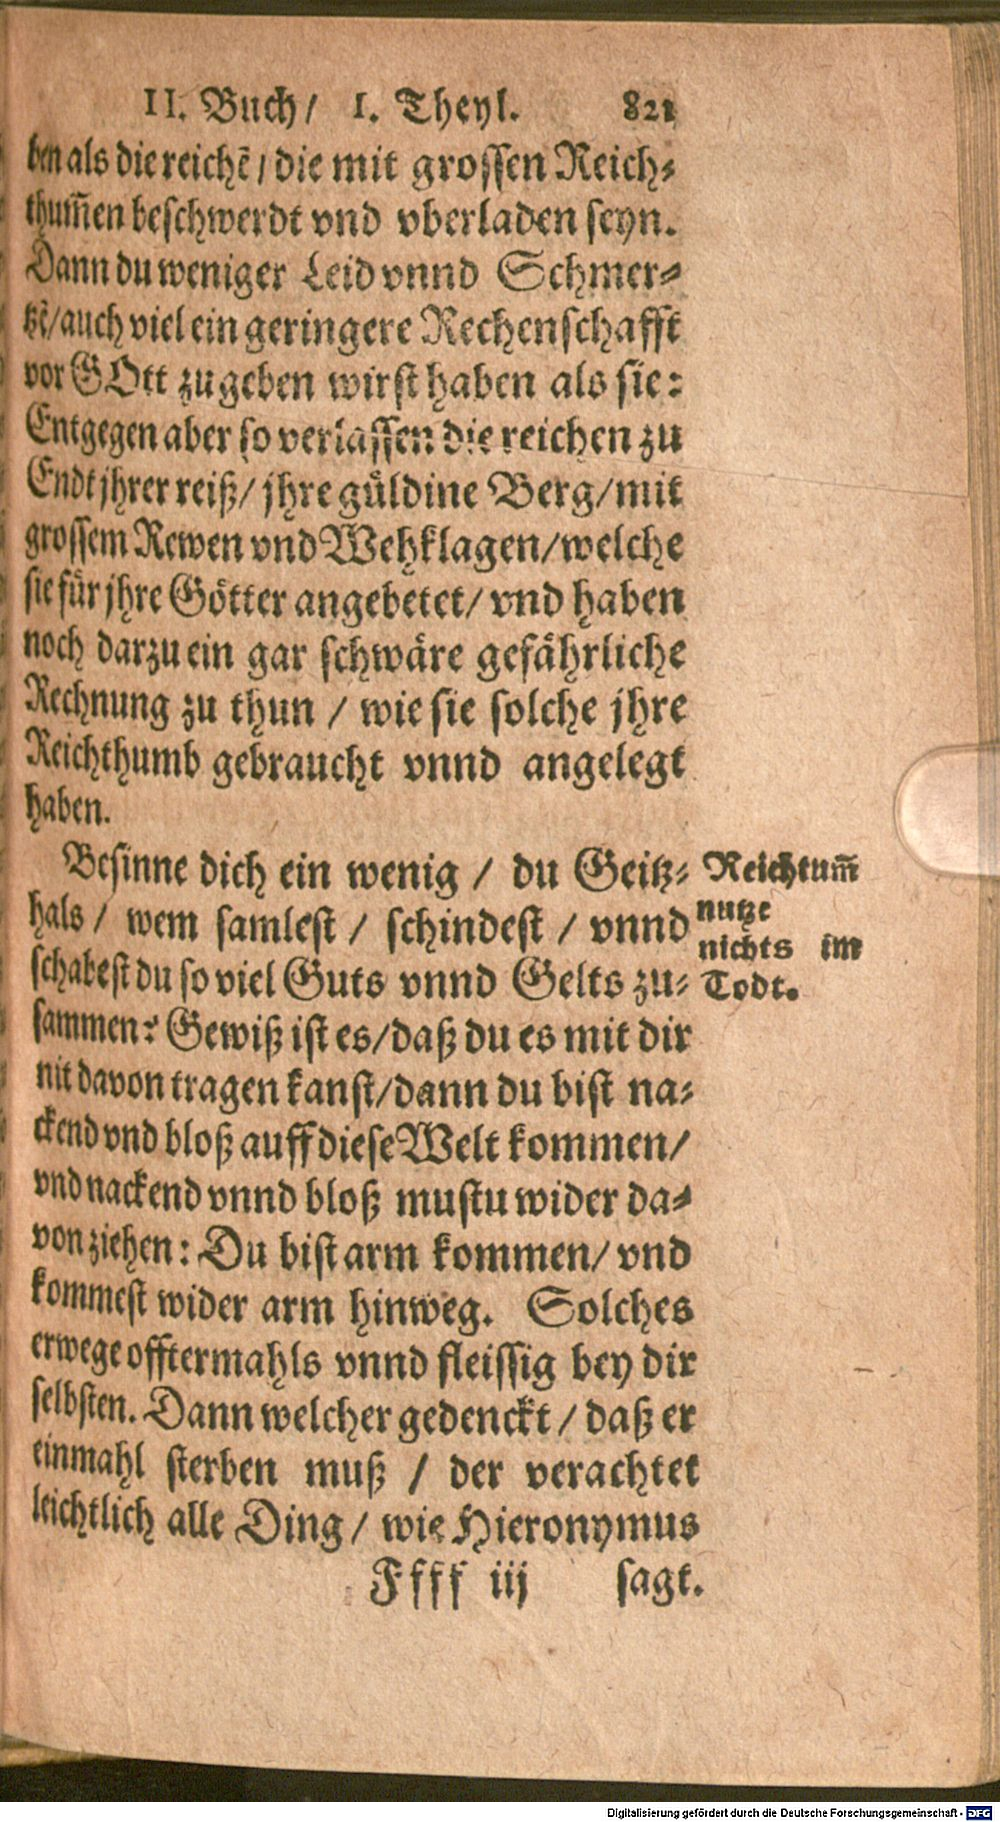 II. Buch/ I. Theyl. 821
ben als die reichẽ/ die mit grossen Reich-
thum̃en beschwerdt vnd vberladen seyn.
Dann du weniger Leid vnnd Schmer-
tzẽ/ auch viel ein geringere Rechenschafft
vor GOtt zu geben wirst haben als sie:
Entgegen aber so verlassen die reichen zu
Endt jhrer reiß/ jhre güldine Berg/ mit
grossem Rewen vnd Wehklagen/ welche
sie für jhre Götter angebetet/ vnd haben
noch darzu ein gar schwäre gefährliche
Rechnung zu thun / wie sie solche jhre
Reichthumb gebraucht vnnd angelegt
haben.
Besinne dich ein wenig / du Geitz-
hals / wem samlest / schindest / vnnd
schabest du so viel Guts vnnd Gelts zu-
sammen? Gewiß ist es/ daß du es mit dir
nit davon tragen kanst/ dann du bist na-
ckend vnd bloß auff diese Welt kommen/
vnd nackend vnnd bloß mustu wider da-
von ziehen: Du bist arm kommen/ vnd
kommest wider arm hinweg. Solches
erwege offtermahls vnnd fleissig bey dir
selbsten. Dann welcher gedenckt / daß er
einmahl sterben muß / der verachtet
leichtlich alle Ding / wie Hieronymus
Ffff iij sagt.
Reichtum̃
nutze
nichts im
Todt.
Digitalisierung gefördert durch die Deutsche Forschungsgemeinschaft - DFG